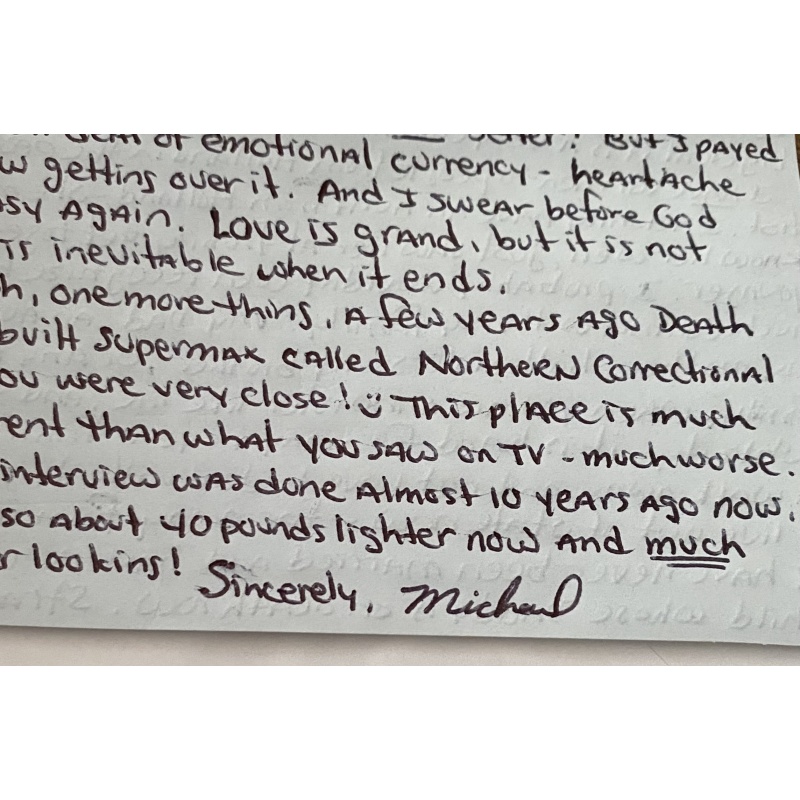 of emotional currency - heartache
But I payed
w getting over it. And I swear before God
sy Again. Love is grand, but it is not
is inevitable when it ends.
h, one more thing, A few years ago Death
built supermax called Northern Correctional
ou were very close! ü This place is much
rent than what you saw on TV - much worse.
interview was done Almost 10 years ago now.
so about 40 pounds lighter now and much
r looking! Sincerely, Michael